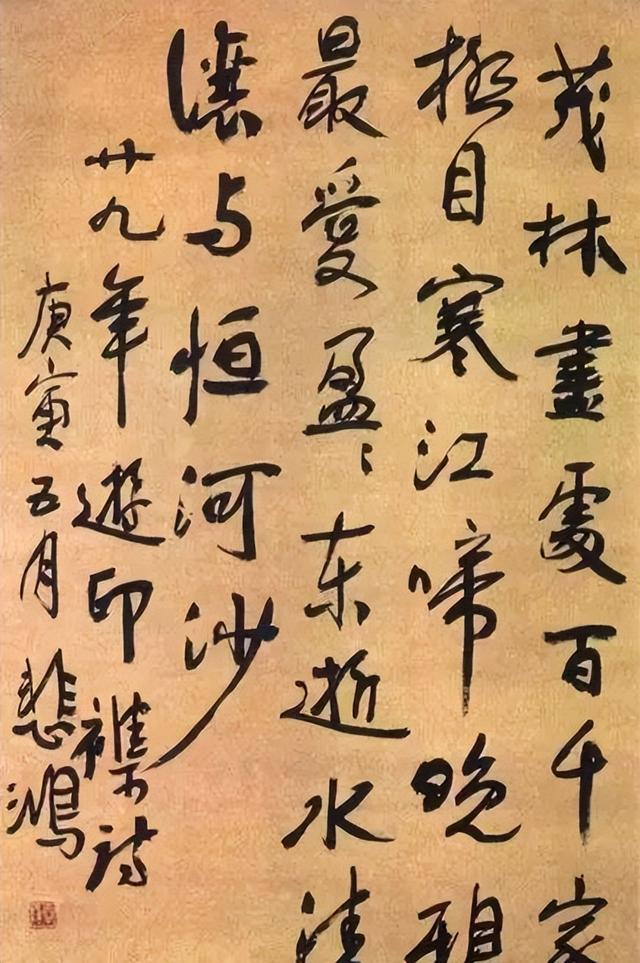 茂林盡處百千家
極目寒江啼晚鴉
最愛盈盈东逝水清
讓与恒河沙
廿九年遊印襍詩
庚寅五月 悲鴻